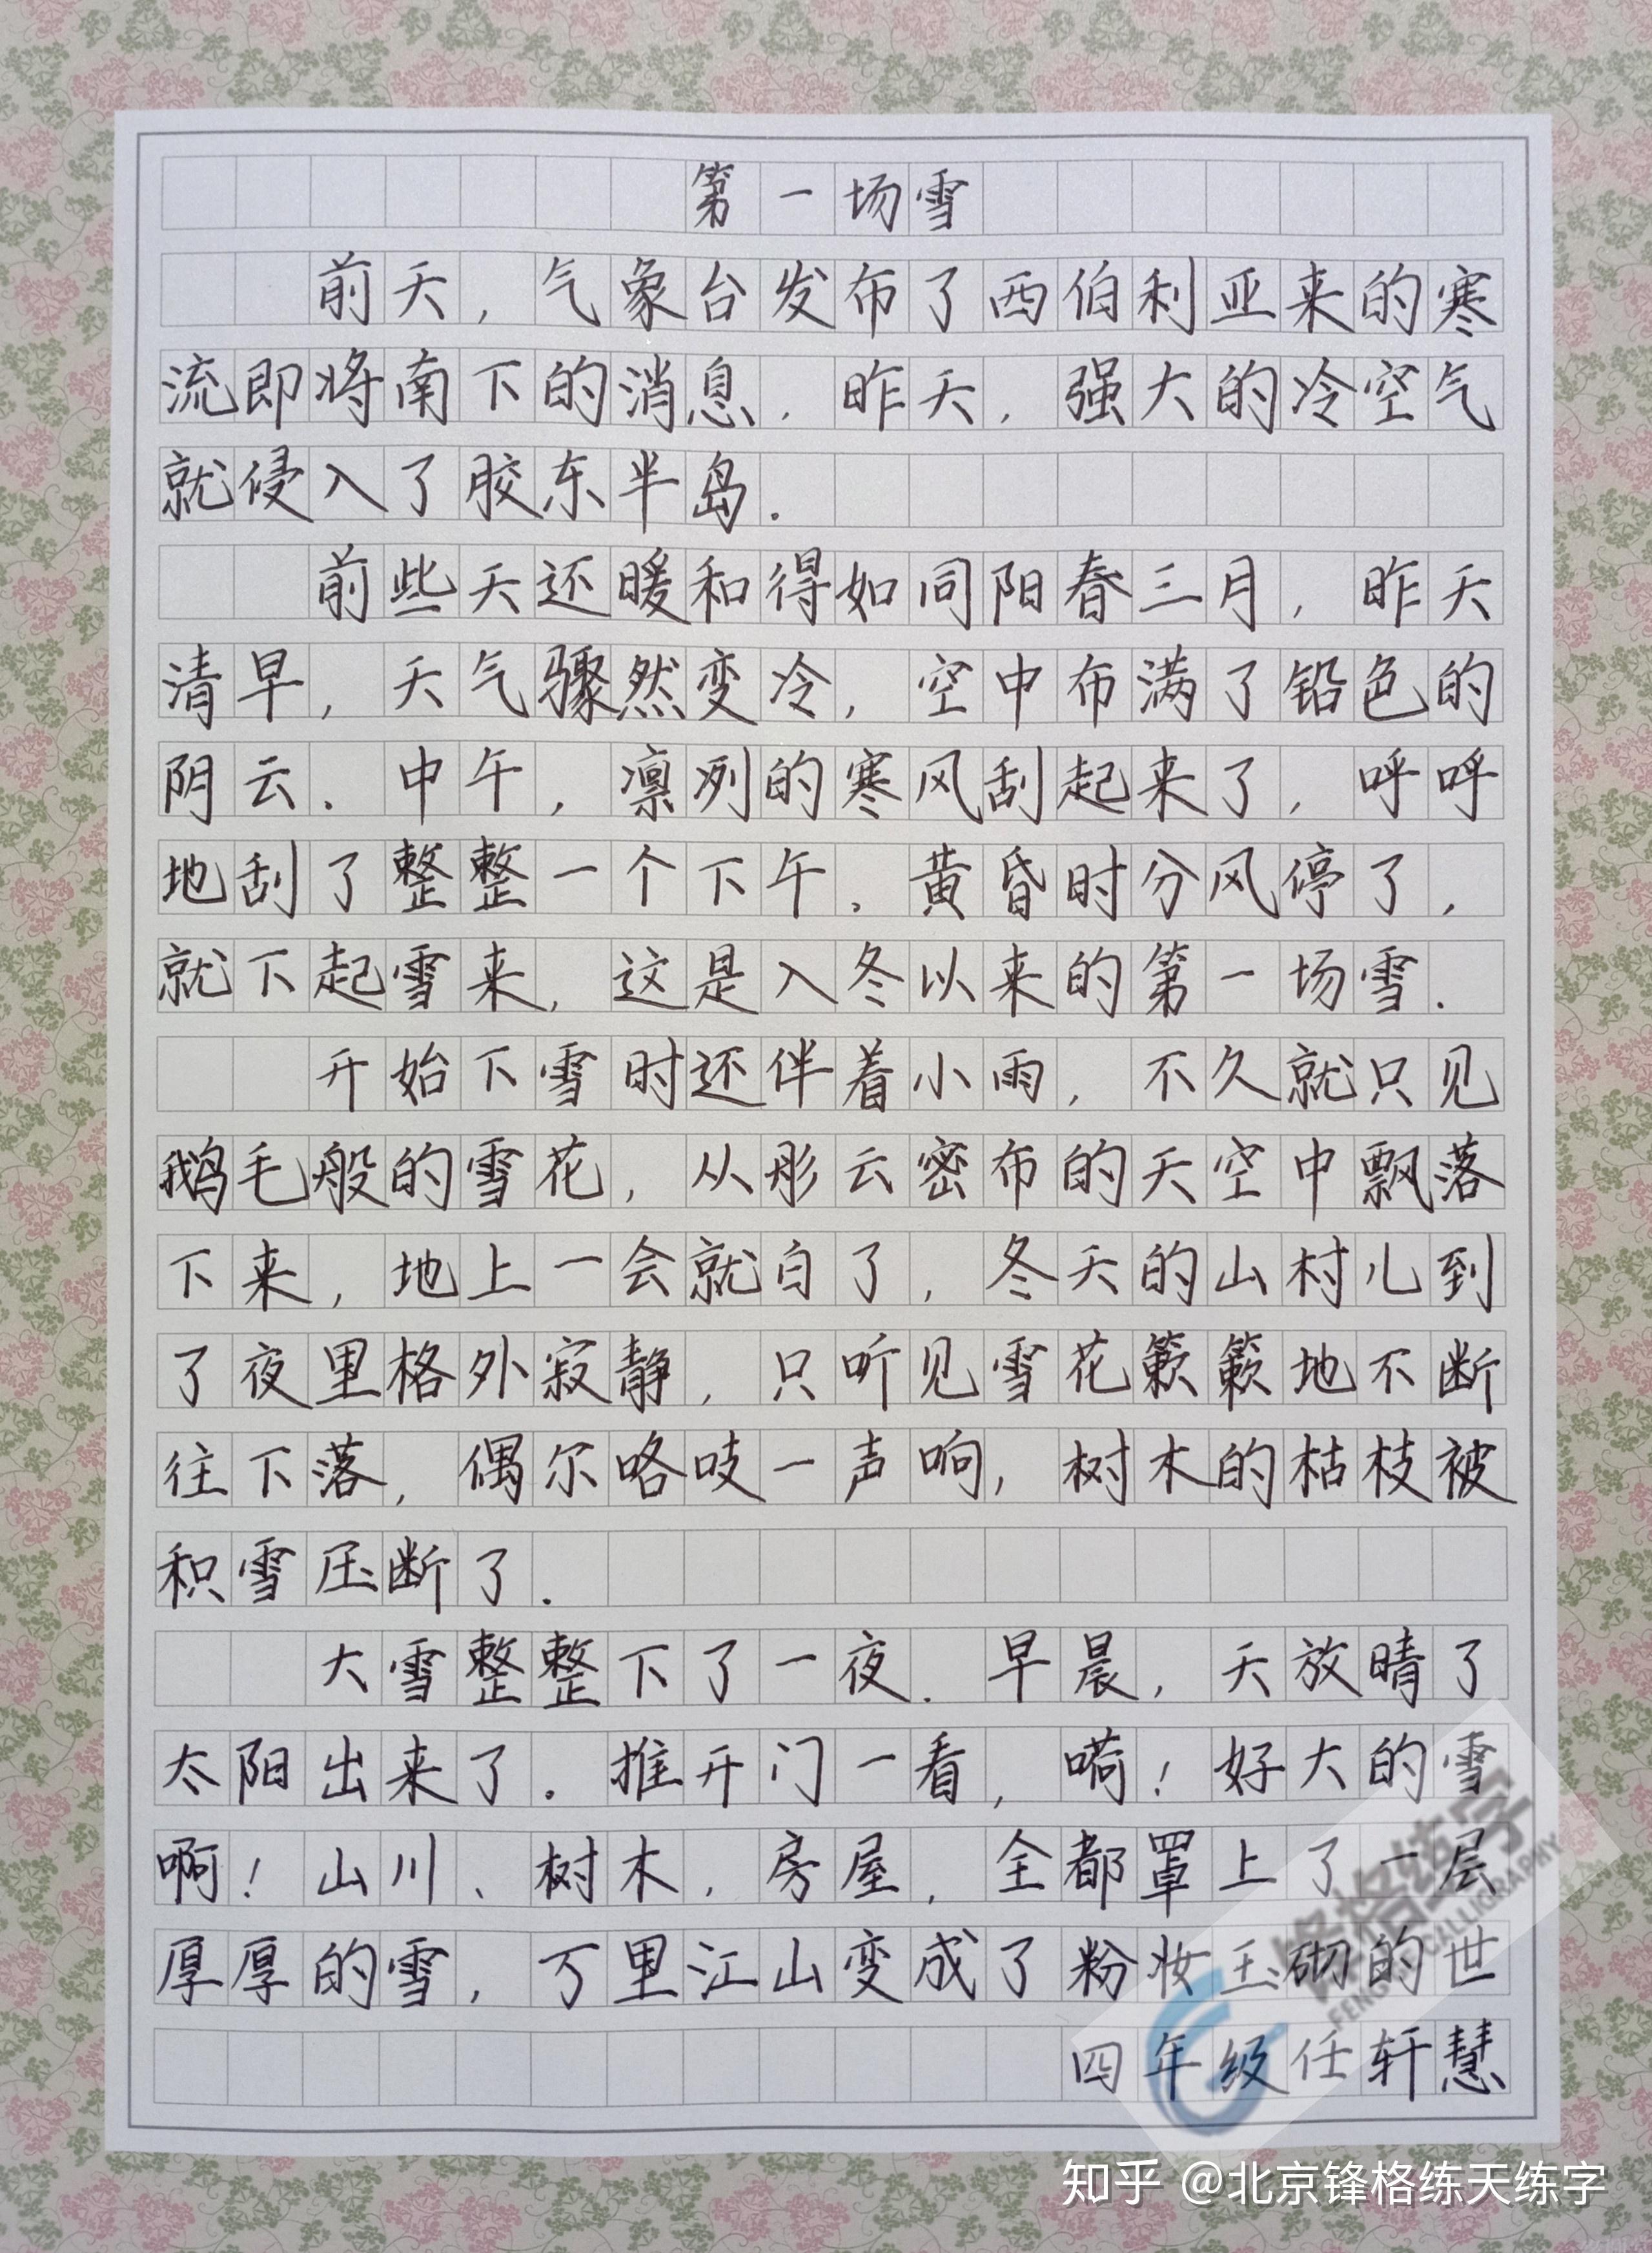 第一场雪
前天，气象台发布了西伯利亚来的寒
流即将南下的消息，昨天，强大的冷空气
就侵入了胶东半岛.
前些天还暖和得如同阳春三月，昨天
清早，天气骤然变冷，空中布满了铅色的
阴云.中午，凛冽的寒风刮起来了，呼呼
地刮了整整一个下午.黄昏时分风停了，
就下起雪来，这是入冬以来的第一场雪.
开始下雪时还伴着小雨，不久就只见
鹅毛般的雪花，从彤云密布的天空中飘落
下来，地上一会就白了，冬天的山村儿到
了夜里格外寂静，只听见雪花簌簌地不断
往下落，偶尔咯吱一声响，树木的枯枝被
积雪压断了.
大雪整整下了一夜.早晨，天放晴了
太阳出来了.推开门一看，嗬！好大的雪
啊！山川、树木，房屋，全都罩上了一层
厚厚的雪，万里江山变成了粉妆玉砌的世
四年级任轩慧
锋格练字
FENGGE CALLIGRAPHY
知乎 @北京锋格练天练字